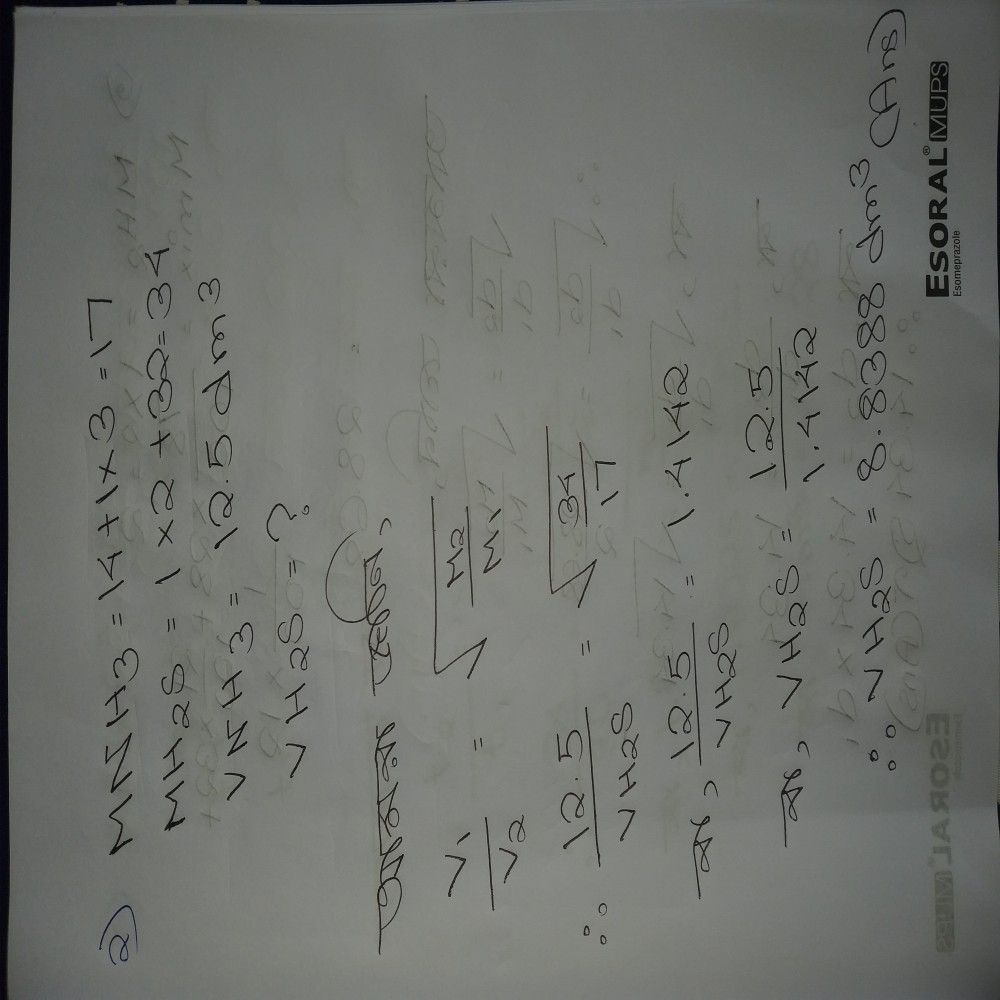 ২) MNH3 = 14+1×3 = 17
MH2S = 1 ×2 +32 = 34
VNH3 = 12.5dm3
VH2S = ?
আমরা জানি,
V1/V2 = √M2/M1
∴ 12.5/VH2S = √34/17
বা, 12.5/VH2S = 1.4142
বা, VH2S = 12.5/1.4142
∴ VH2S = 8.8388 dm3 (Ans)
ESORAL® MUPS
Esomeprazole